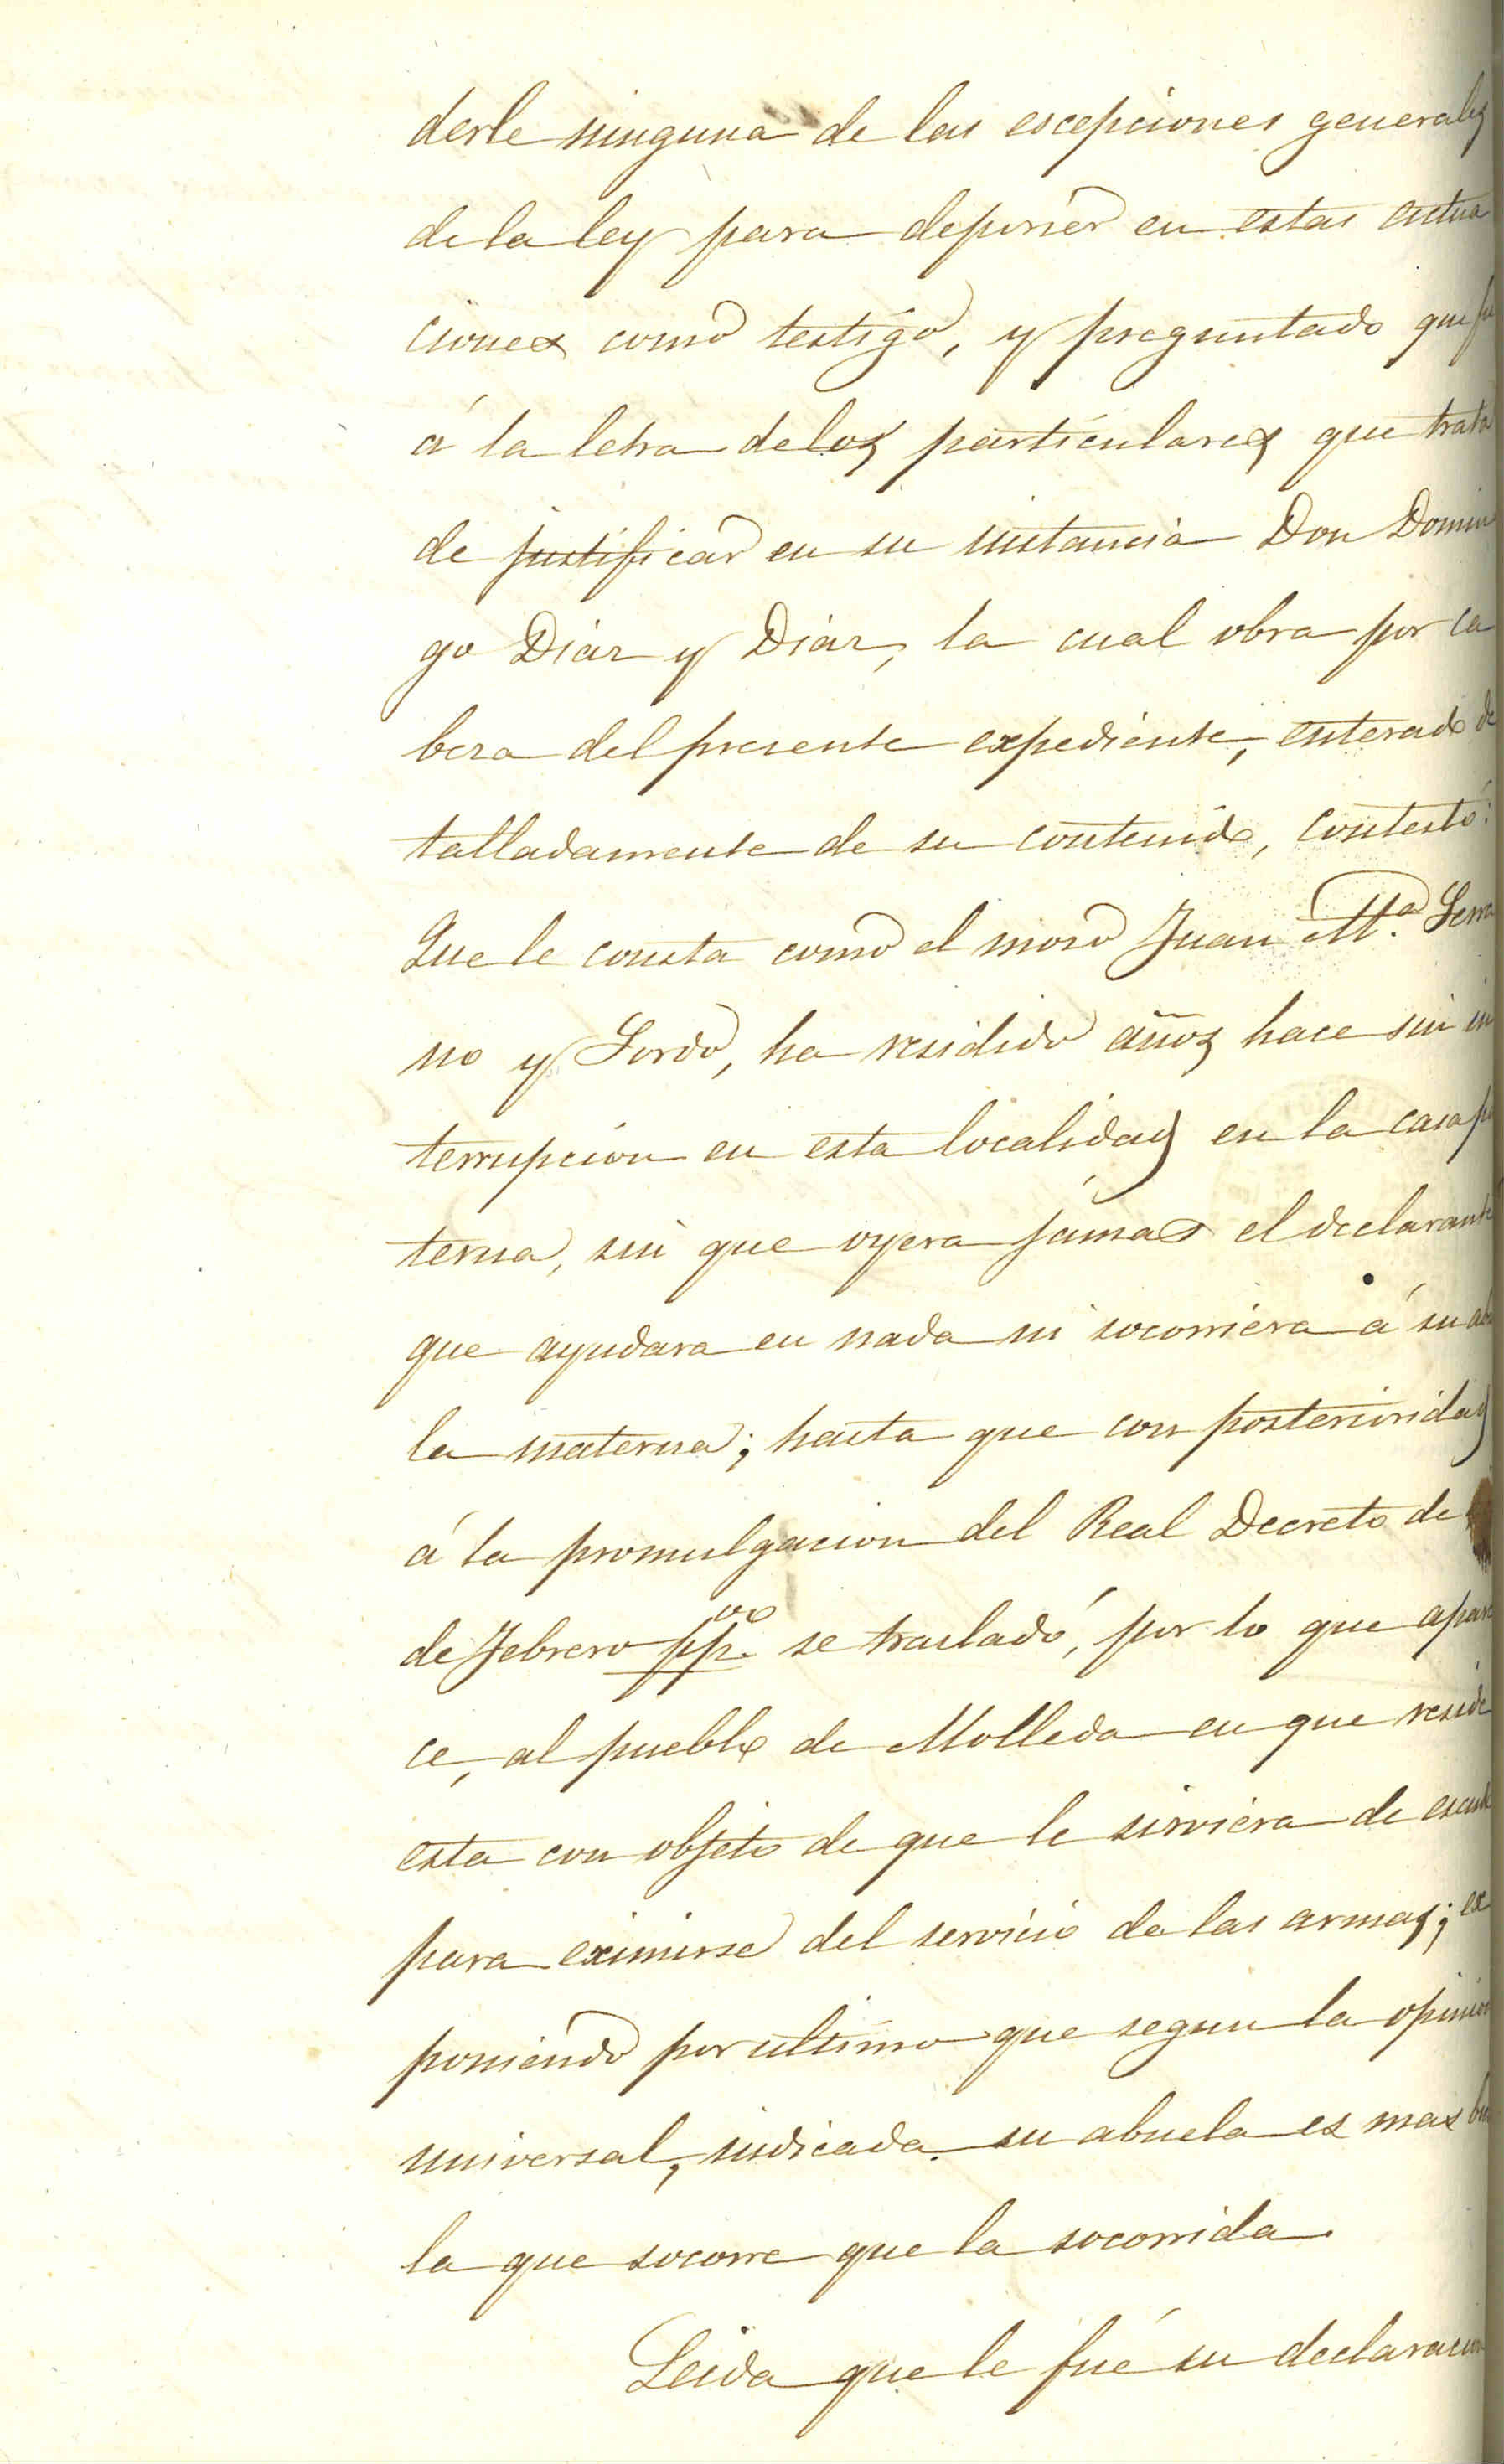 derle ninguna de las escepciones generales
de la ley para deponer en estas actua
ciones como testigo, y preguntado que fu
á la letra de los particulares que trata
de justificar en su instancia Don Domin
go Diaz y Diaz, la cual obra por ca
beza del presente expediente, enterado de
talladamente de su contenido, contestó:
Que le consta como el mozo Juan Mª. Serra
no y Sordo, ha residido años hace sin in
terrupcion en esta localidad en la casa pa
terna, sin que oyera jamas el declarante
que ayudara en nada ni socorriera á su abue
la materna; hasta que con posterioridad
á la promulgacion del Real Decreto de
de Febrero ppᵒ. se trasladó, por lo que apare
ce, al pueblo de Molleda en que reside
esta con objeto de que le sirviera de escude
para eximirse del servicio de las armas; ex
poniendo por ultimo que segun la opinion
universal, indicada su abuela es mas bien
la que socorre que la socorrida.
Leida que le fué su declaracion